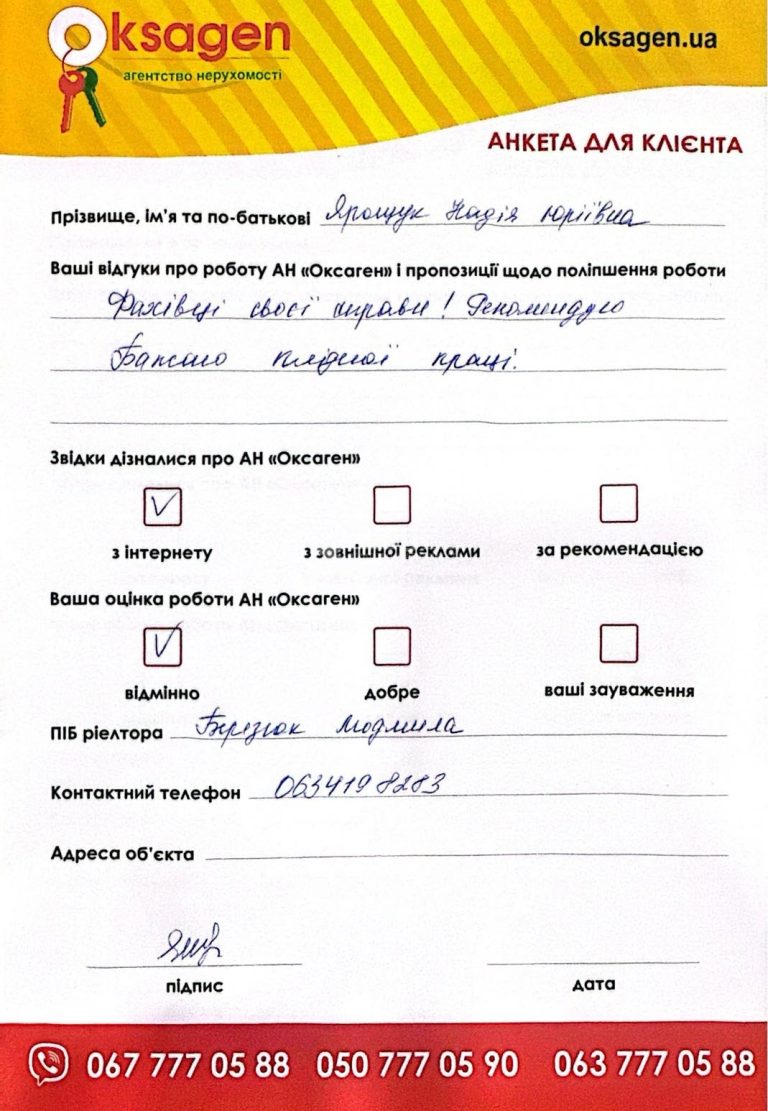 Oksagen
oksagen.ua
агентство нерухомості
АНКЕТА ДЛЯ КЛІЄНТА
Прізвище, ім'я та по-батькові Ярощук Надія Юріївна
Ваші відгуки про роботу АН «Оксаген» і пропозиції щодо поліпшення роботи
Фахівці своєї справи! Рекомендую
Бажаю плідної праці.
Звідки дізналися про АН «Оксаген»
з інтернету з зовнішної реклами за рекомендацією
Ваша оцінка роботи АН «Оксаген»
відмінно добре ваші зауваження
ПІБ ріелтора Березюк Людмила
Контактний телефон 0634198283
Адреса об'єкта
підпис дата
067 777 05 88 050 777 05 90 063 777 05 88